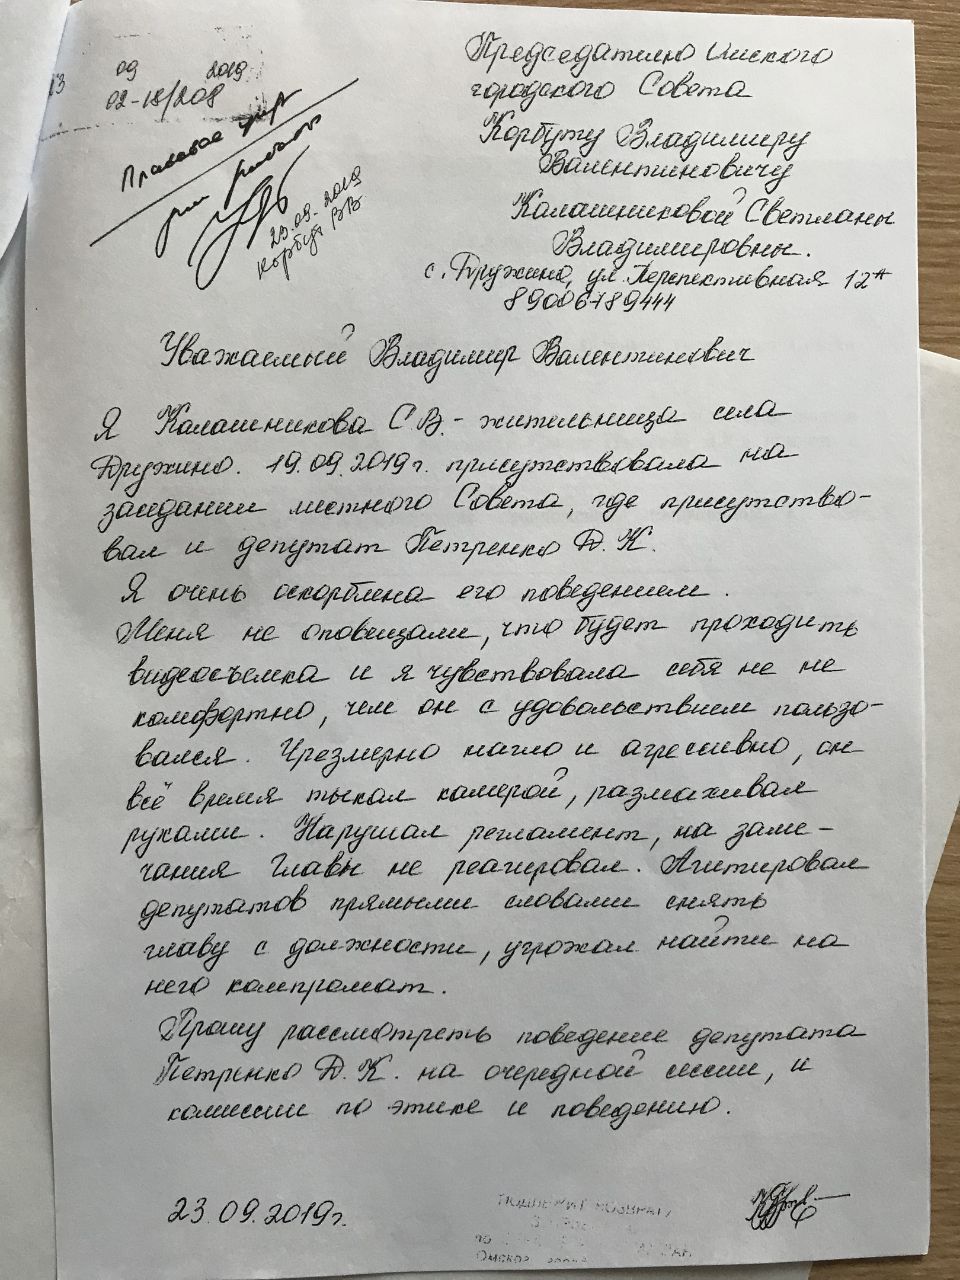 23 09 2019
02-18/208
Правовое упр
для работы
23.09.2019
Корбут ВВ
Председателю Омского
городского Совета
Корбуту Владимиру
Валентиновичу
Калашниковой Светланы
Владимировны.
с. Дружино, ул. Перспективная 12а
89006789444
Уважаемый Владимир Валентинович
Я Калашникова С.В. - жительница села
Дружино. 19.09.2019г. присутствовала на
заседании местного Совета, где присутство-
вал и депутат Петренко Д.К.
Я очень оскорблена его поведением.
Меня не оповещали, что будет проходить
видеосъемка и я чувствовала себя не не
комфортно, чем он с удовольствием пользо-
вался. Чрезмерно нагло и агрессивно, он
всё время тыкал камерой, размахивал
руками. Нарушал регламент, на заме-
чания Главы не реагировал. Агитировал
депутатов прямыми словами снять
главу с должности, угрожал найти на
него компромат.
Прошу рассмотреть поведение депутата
Петренко Д.К. на очередной сессии, и
комиссии по этике и поведению.
23.09.2019г.
ПОДЛЕЖИТ ВОЗВРАТУ